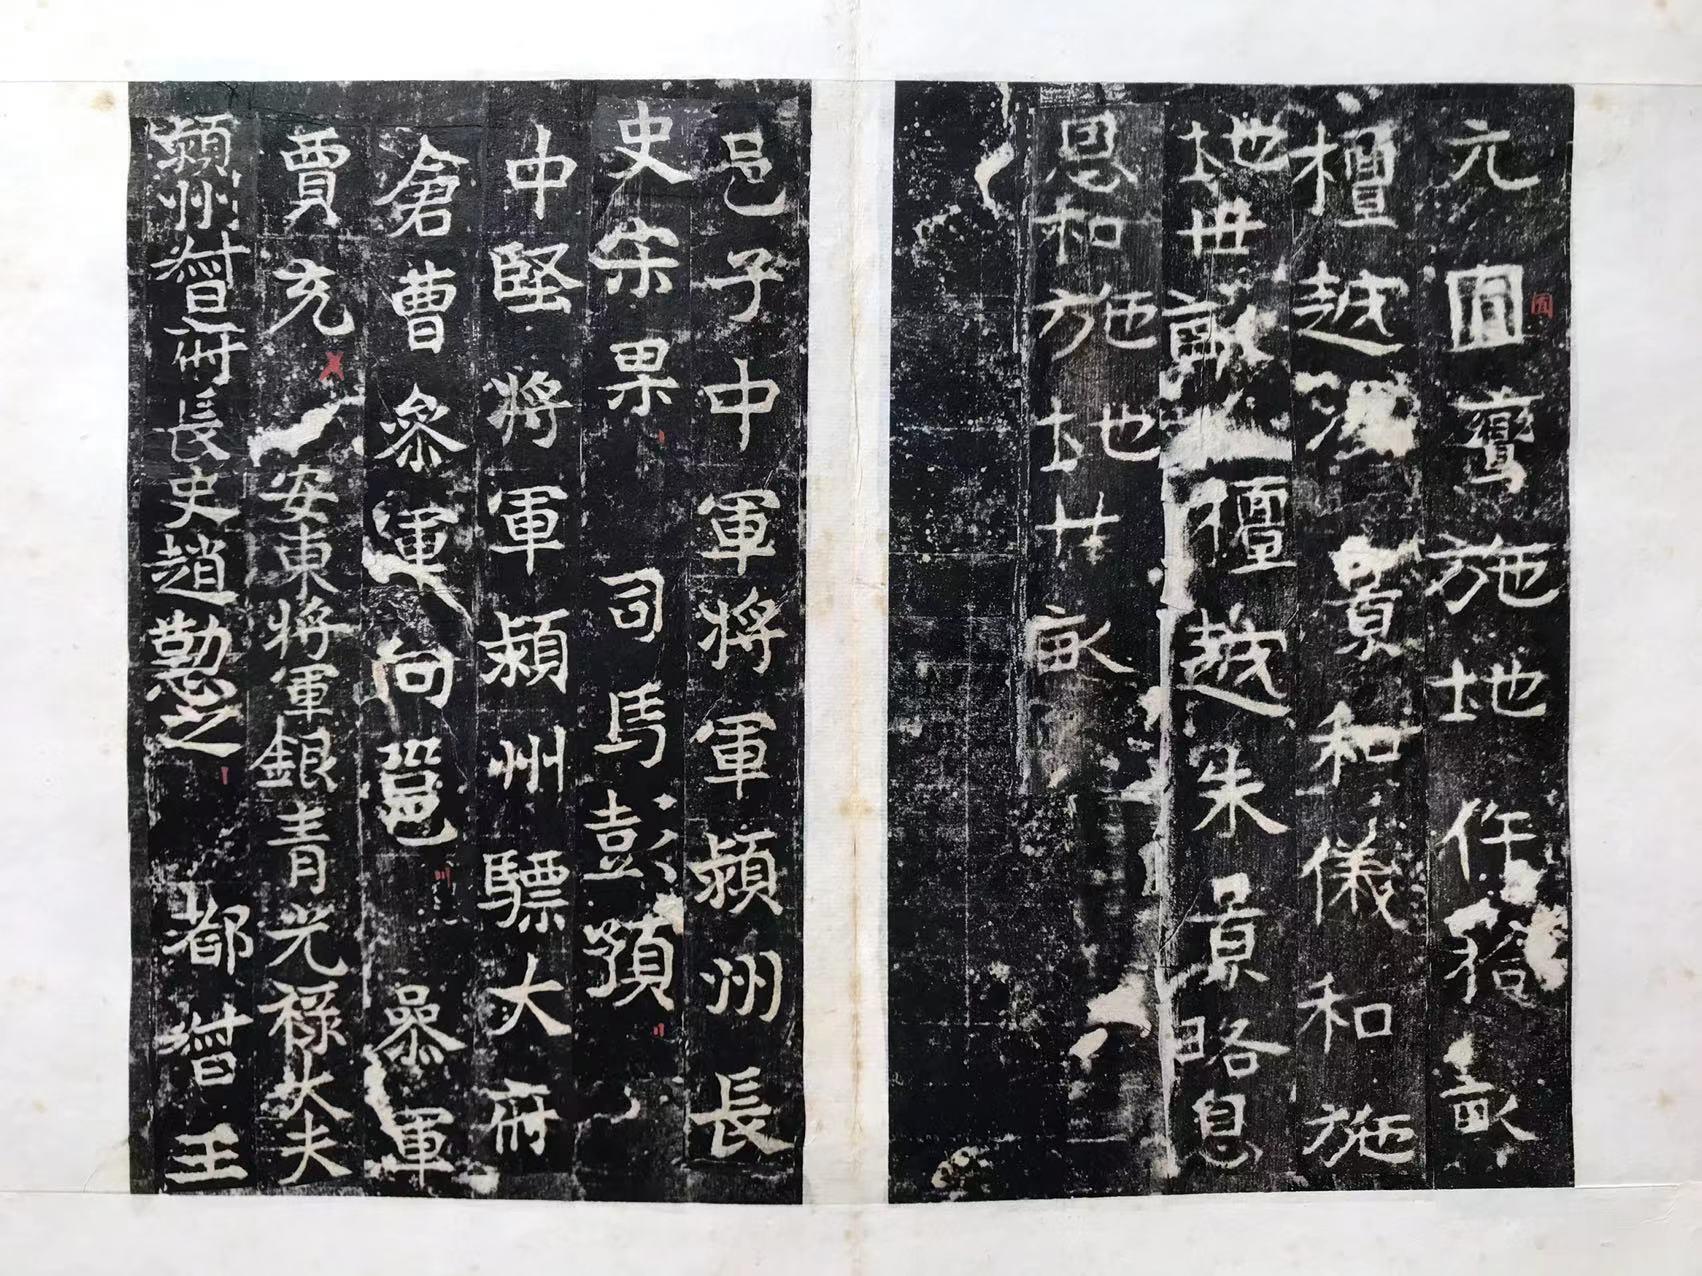 元圓鸞施地仵拾畝
檀越景和儀和施
地卌畝檀越朱景略息
恩和施地廿畝
邑子中軍將軍潁州長
史宋果 司馬彭預
中堅將軍潁州驃大府
倉曹參軍向邕 參軍
賈充 安東將軍銀青光祿大夫
潁州督府長史趙懃之 都督王